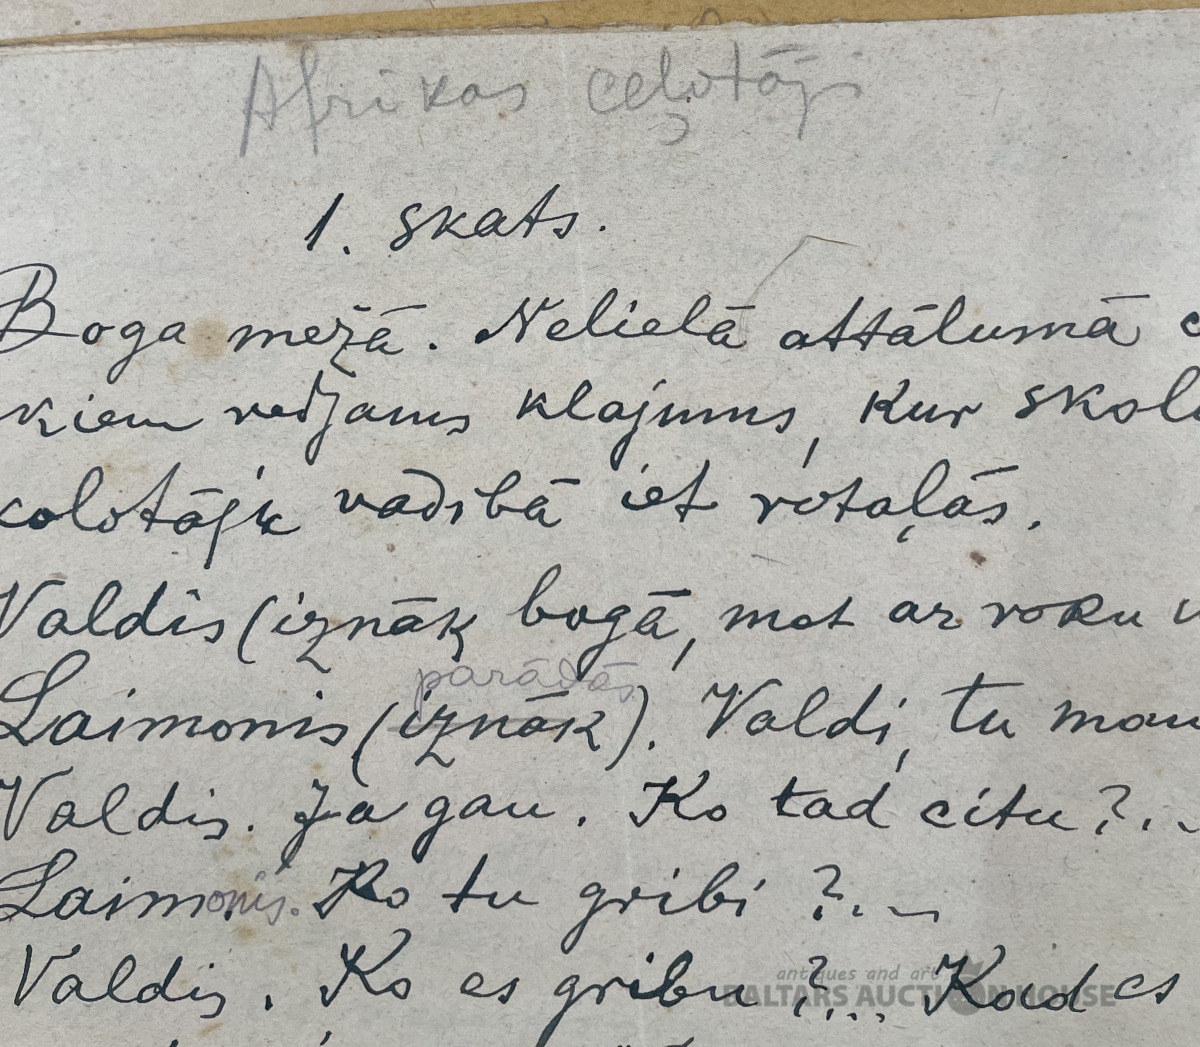 Afrikas ceļotāji
1. skats.
Boga mežā. Nelielā attālumā
kiem redzams klajums, kur skol
kolotāju vadībā iet rotaļās.
Valdis (iznāk bogā, mot ar roku
parādās
Laimonis (iznāk). Valdi, tu man
Valdis. Ja gau. Ko tad citu?..
Laimonis. Ko tu gribi?..
Valdis. Ko es gribu?... Kad es
antiques and art
BALTARS AUCTION HOUSE